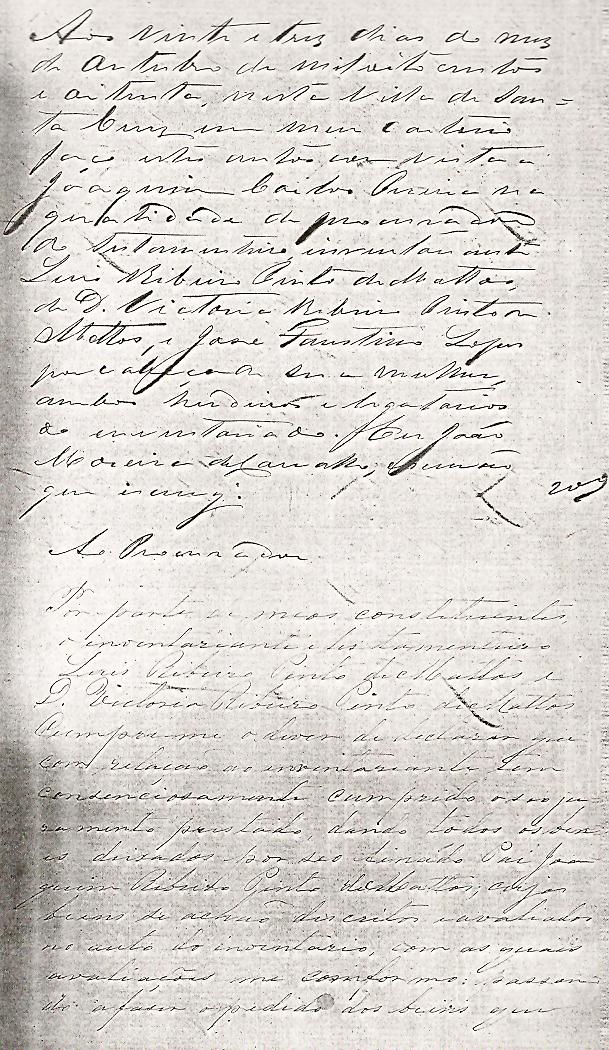 Aos vinte e trez dias do mez
de Outubro de mil oito centos
e oitenta, nesta Villa de San=
ta Cruz em meu Cartorio
faço estes autos com vista a
Joaquim Carlos Pereira na
qualidade de procurador
do testamenteiro inventariante
Luis Ribeiro Pinto de Mattos,
de D. Victoria Ribeiro Pinto de
Mattos, e José Faustino Lopes
por cabeça de sua mulher,
ambos herdeiros e legatarios
do inventariado. Eu João
Moreira de Carvalho, escrivão
que escrevj.
Ao Procurador
Por parte de meos constituintes
o inventariante e testamenteiro
Luis Ribeiro Pinto de Mattos e
D. Victoria Ribeiro Pinto de Mattos
Cumpre me o dever de declarar que
com relação ao inventariante tem
consenciosamente cumprido o seo ju=
ramento prestado dando todos os ben
is deixados por seo finado Pai Joa
quim Ribeiro Pinto de Mattos; cujos
beins se achão descritos e avaliados
no auto do inventario, com as quais
avaliações me comformo: passan
do a faser o pedido dos beins que